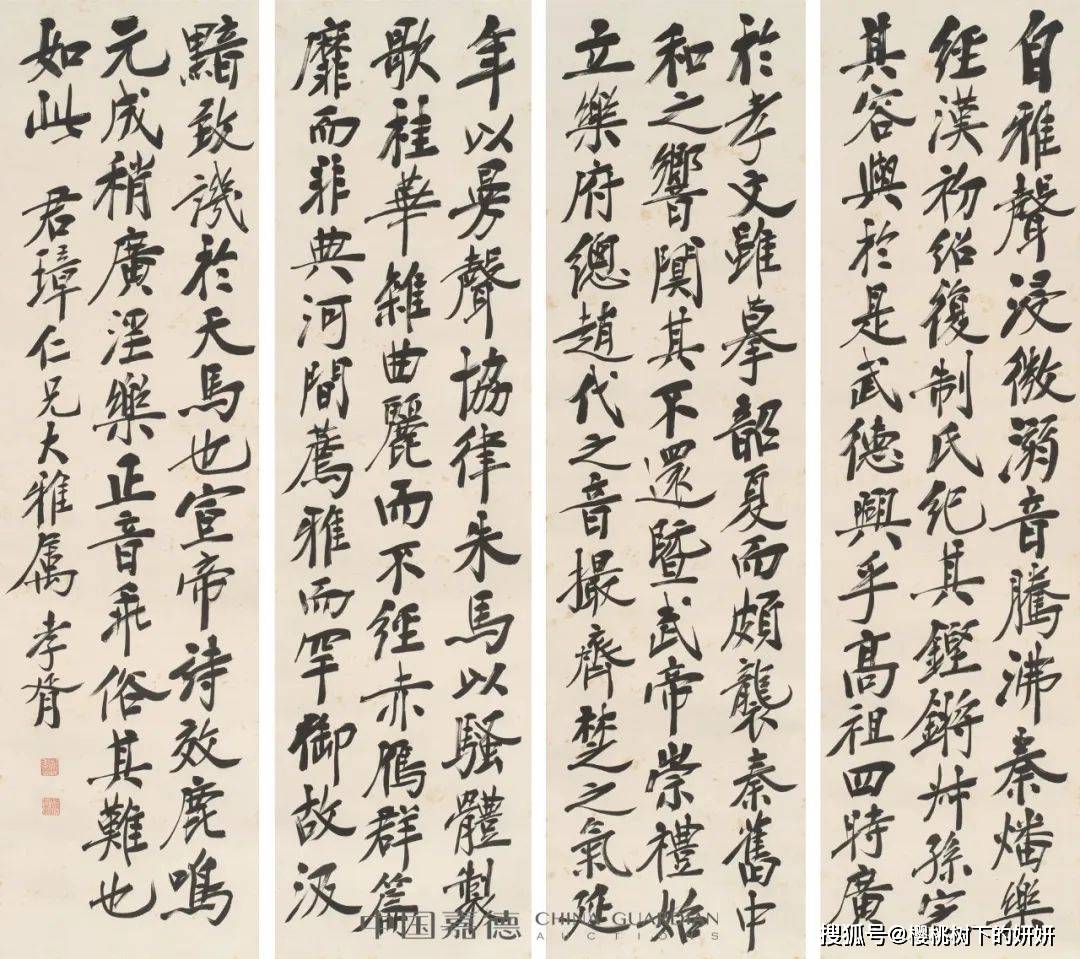 自雅聲浸微溺音騰沸秦燔樂
經漢初紹復制氏紀其鏗鏘叔孫定
其容與於是武德興乎高祖四時廣
於孝文雖摹韶夏而頗襲秦舊中
和之響闃其不還暨武帝崇禮始
立樂府總趙代之音撮齊楚之氣延
年以曼聲協律朱馬以騷體製
歌桂華雜曲麗而不經赤鴈群篇
靡而非典河間薦雅而罕御故汲
黯致譏於天馬也宣帝詩效鹿鳴
元成稍廣淫樂正音乖俗其難也
如此 君璋仁兄大雅属 孝胥
中国嘉德 CHINA GUARDIAN AUCTIONS
搜狐号@樱桃树下的妍妍